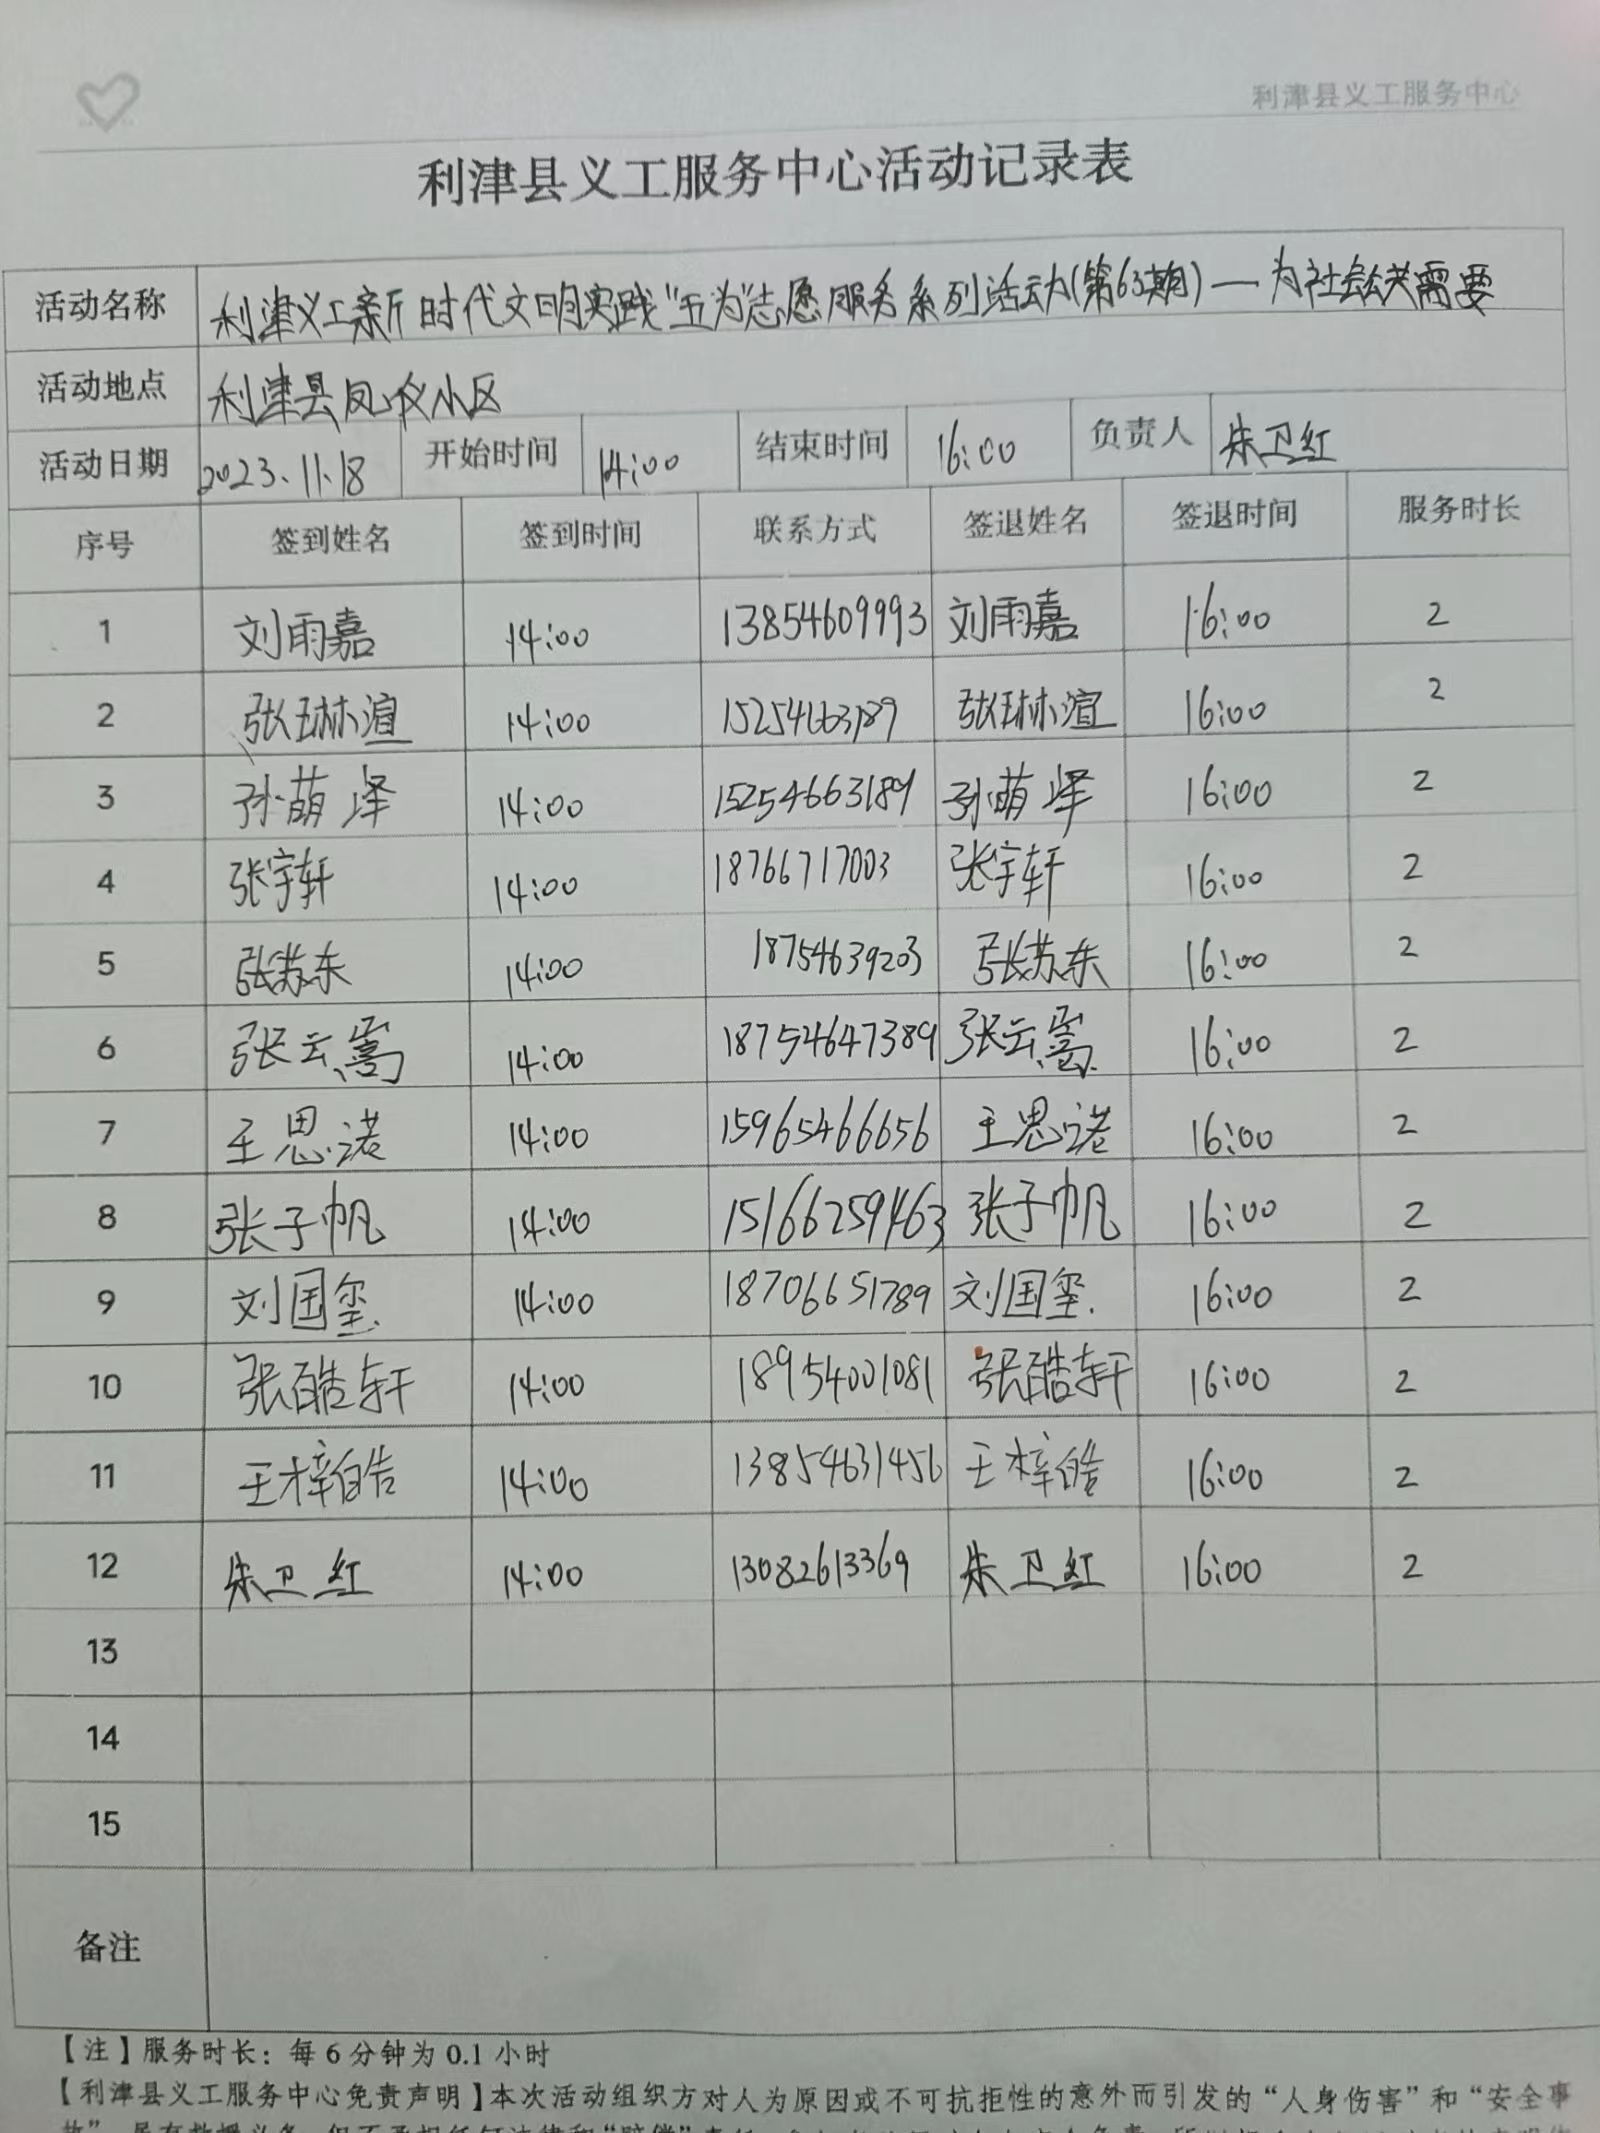 利津县义工服务中心
利津县义工服务中心活动记录表
活动名称 利津义工新时代文明实践“五为”志愿服务系列活动(第63期)—为社会公共需要
活动地点 利津县凤仪小区
活动日期 2023.11.18 开始时间 14:00 结束时间 16:00 负责人 朱卫红
序号 签到姓名 签到时间 联系方式 签退姓名 签退时间 服务时长
1 刘雨嘉 14:00 13854609993 刘雨嘉 16:00 2
2 张琳渲 14:00 15254663189 张琳渲 16:00 2
3 孙萌泽 14:00 15254663189 孙萌泽 16:00 2
4 张宇轩 14:00 18766717003 张宇轩 16:00 2
5 张苏东 14:00 18754639203 张苏东 16:00 2
6 张云嵩 14:00 18754647389 张云嵩 16:00 2
7 王思诺 14:00 15965466656 王思诺 16:00 2
8 张子帆 14:00 15166259463 张子帆 16:00 2
9 刘国玺 14:00 18706651789 刘国玺 16:00 2
10 张皓轩 14:00 18954001081 张皓轩 16:00 2
11 王梓皓 14:00 13854631456 王梓皓 16:00 2
12 朱卫红 14:00 13082613369 朱卫红 16:00 2
13
14
15
备注
【注】服务时长：每6分钟为0.1小时
【利津县义工服务中心免责声明】本次活动组织方对人为原因或不可抗拒性的意外而引发的“人身伤害”和“安全事